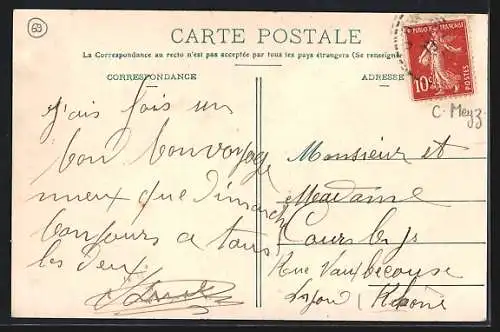 69
CARTE POSTALE
La Correspondance au recto n'est pas acceptée par tous les pays étrangers (Se renseigner
CORRESPONDANCE
ADRESSE
REPUBLIQUE FRANÇAISE
POSTES
10c
C. Meyz
J'ais fais un
bon bonvoyage
mieux que dimanch
bonjours a tous
les deux
Monsieur et
Madame
Rue Vaubecouse
Lyon Rhône